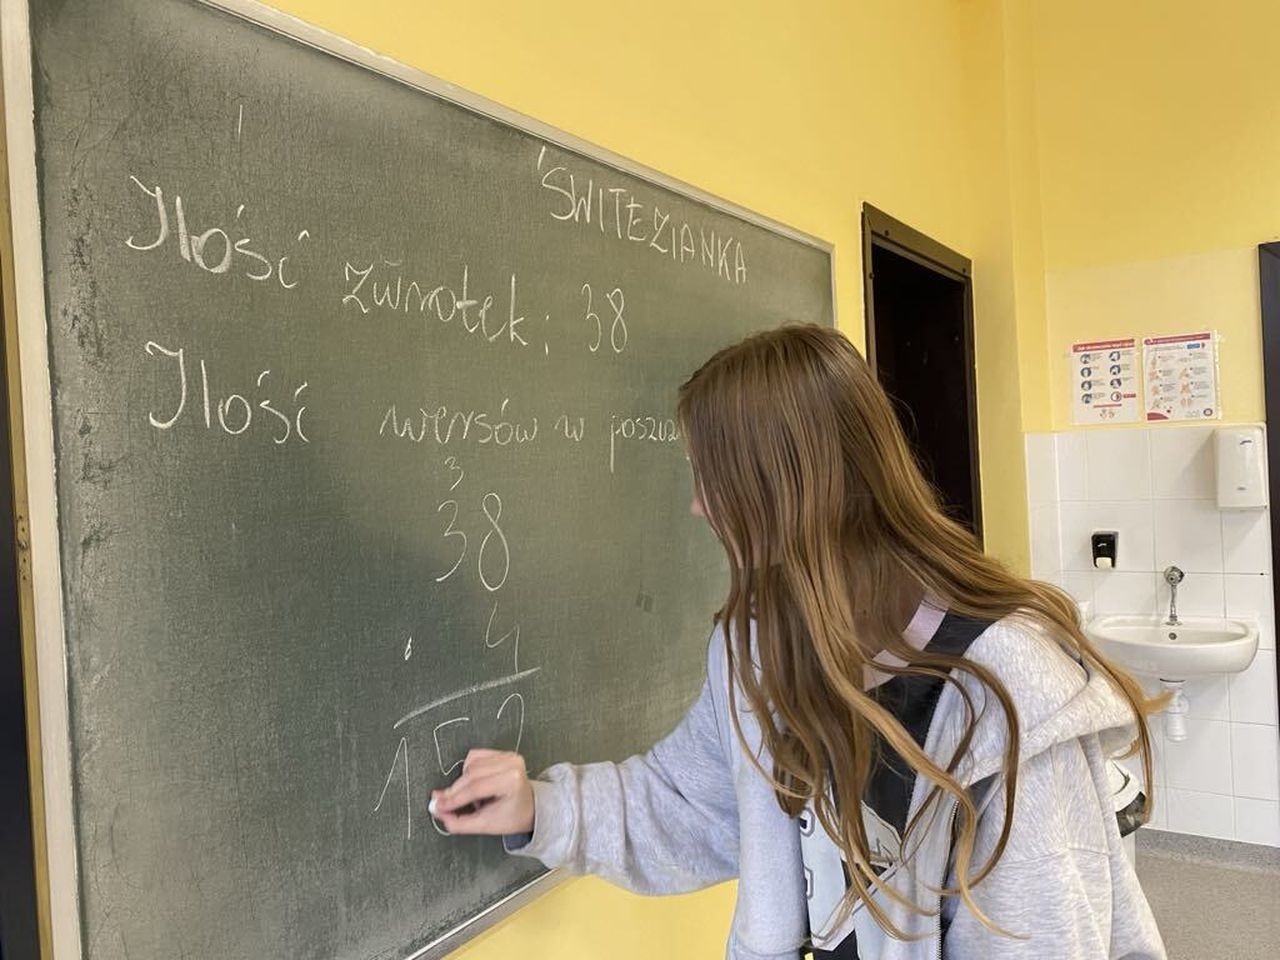 ŚWITEZIANKA
Ilość zwrotek: 38
Ilość wersów w
3
38
4
152